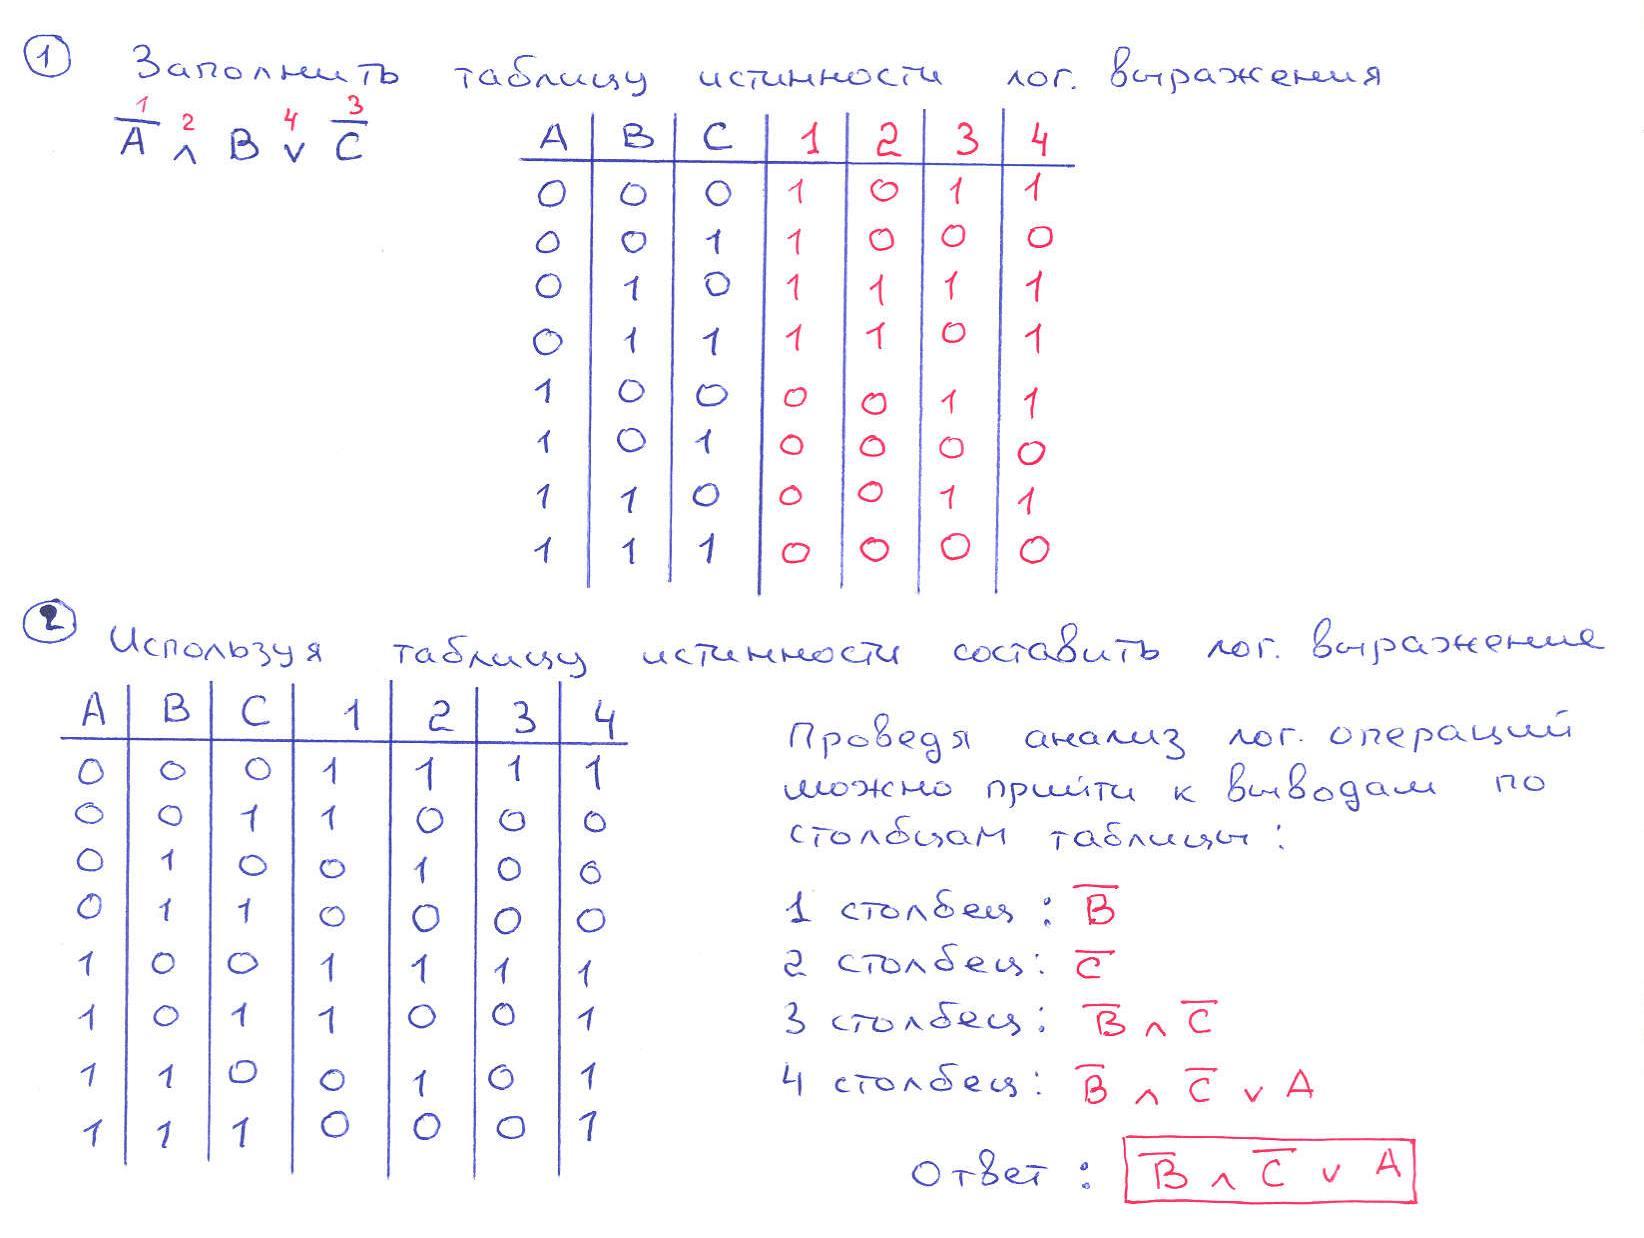 1 Заполнить таблицу истинности лог. выражения
1 2 4 3
A̅ ∧ B ∨ C̅
A B C 1 2 3 4
0 0 0 1 0 1 1
0 0 1 1 0 0 0
0 1 0 1 1 1 1
0 1 1 1 1 0 1
1 0 0 0 0 1 1
1 0 1 0 0 0 0
1 1 0 0 0 1 1
1 1 1 0 0 0 0
2 Используя таблицу истинности составить лог. выражение
A B C 1 2 3 4
0 0 0 1 1 1 1
0 0 1 1 0 0 0
0 1 0 0 1 0 0
0 1 1 0 0 0 0
1 0 0 1 1 1 1
1 0 1 1 0 0 1
1 1 0 0 1 0 1
1 1 1 0 0 0 1
Проведя анализ лог. операций
можно прийти к выводам по
столбцам таблицы:
1 столбец: B̅
2 столбец: C̅
3 столбец: B̅ ∧ C̅
4 столбец: B̅ ∧ C̅ ∨ A
Ответ: B̅ ∧ C̅ ∨ A